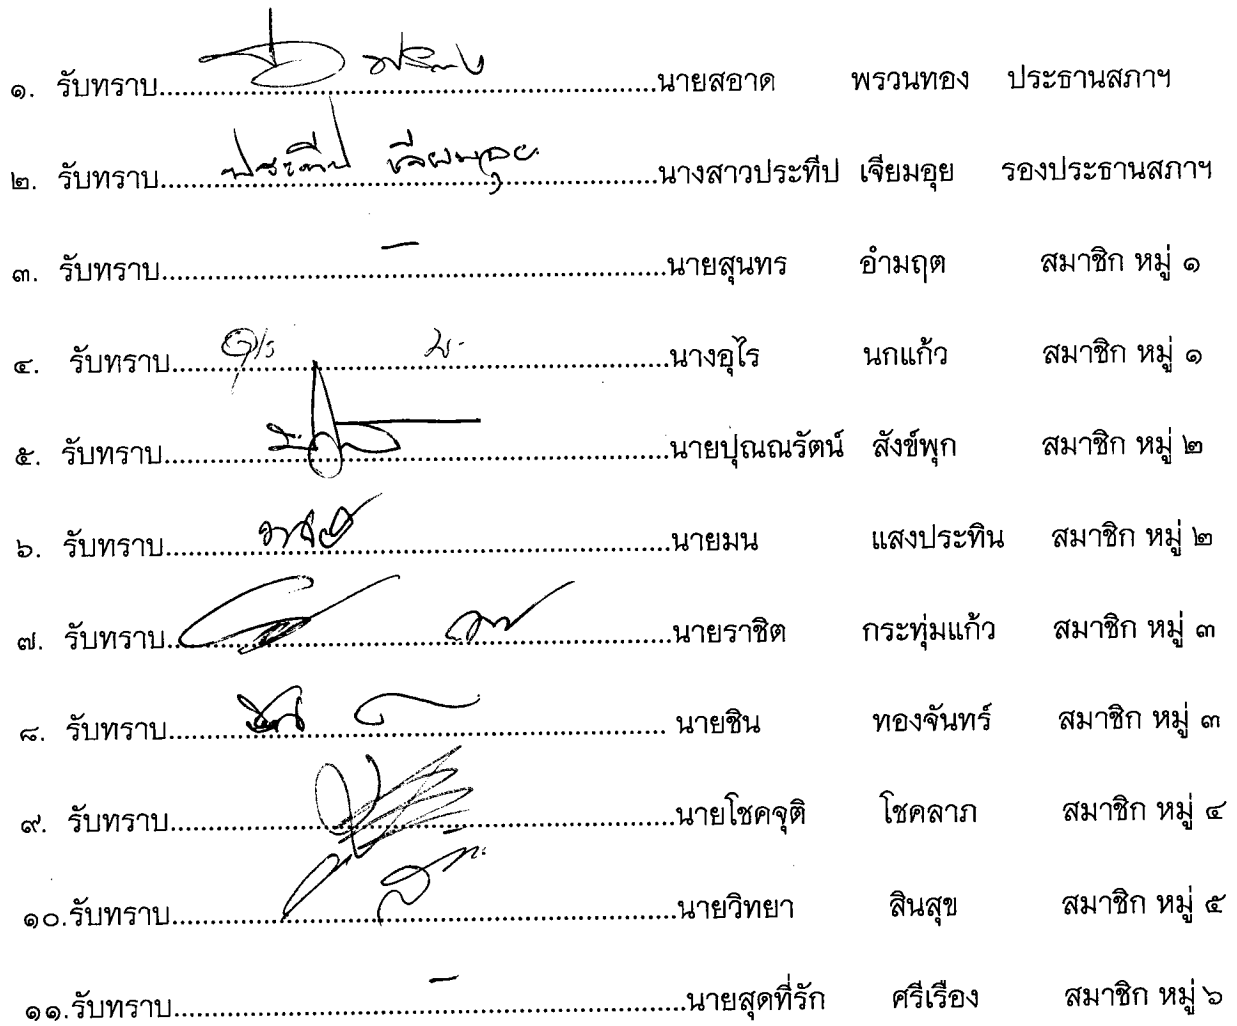 ๑. รับทราบ.......................................................นายสอาด พรวนทอง ประธานสภาฯ
๒. รับทราบ...ประทีป เจียมอุย...นางสาวประทีป เจียมอุย รองประธานสภาฯ
๓. รับทราบ..........................–.............................นายสุนทร อำมฤต สมาชิก หมู่ ๑
๔. รับทราบ.......................................................นางอุไร นกแก้ว สมาชิก หมู่ ๑
๕. รับทราบ.......................................................นายปุณณรัตน์ สังข์พุก สมาชิก หมู่ ๒
๖. รับทราบ.......................................................นายมน แสงประทิน สมาชิก หมู่ ๒
๗. รับทราบ.......................................................นายราชิต กระทุ่มแก้ว สมาชิก หมู่ ๓
๘. รับทราบ....................................................... นายชิน ทองจันทร์ สมาชิก หมู่ ๓
๙. รับทราบ.......................................................นายโชคจุติ โชคลาภ สมาชิก หมู่ ๔
๑๐.รับทราบ.......................................................นายวิทยา สินสุข สมาชิก หมู่ ๕
๑๑.รับทราบ............................–...........................นายสุดที่รัก ศรีเรือง สมาชิก หมู่ ๖